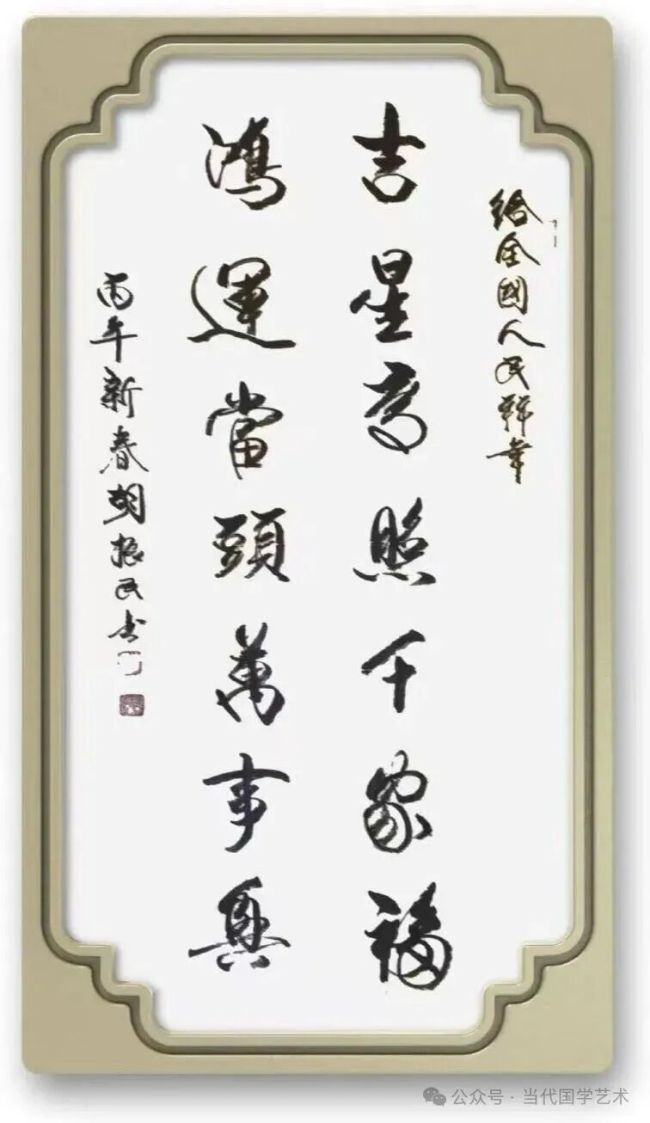 给全國人民拜年
吉星高照千家福
鴻運當頭萬事興
丙午新春胡振民书
公众号 · 当代国学艺术